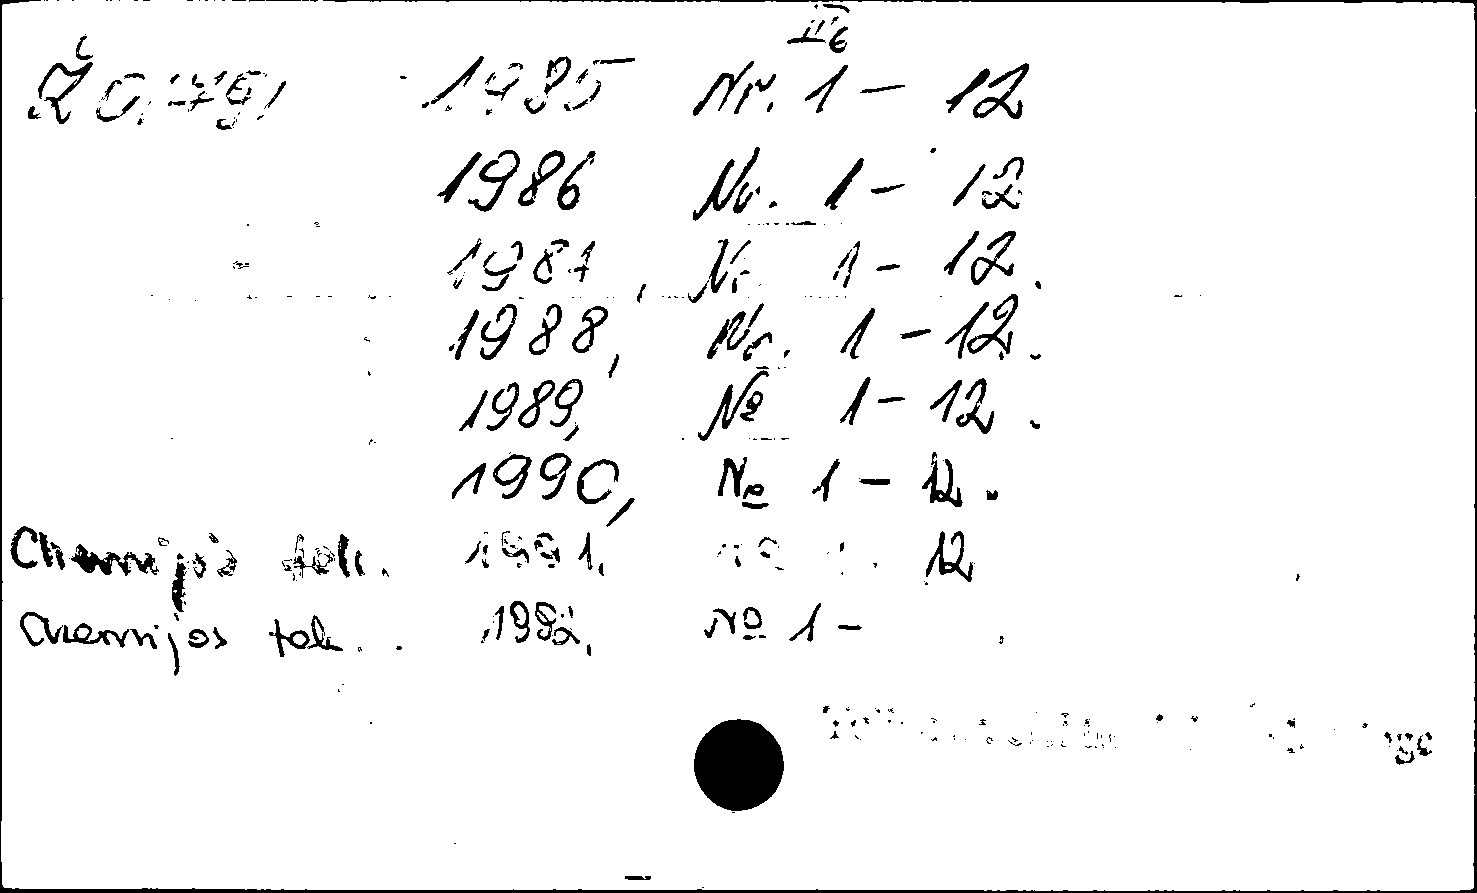 II6
Ž 0.791 1985 Nr. 1 - 12
1986 Nr. 1 - 12
1987, Nr. 1 - 12.
1988, Nr. 1 - 12.
1989, № 1 - 12.
1990, № 1 - 12.
Chemijos tech. 1991. № 1 - 12
Chemijos tech. 1992. № 1 -